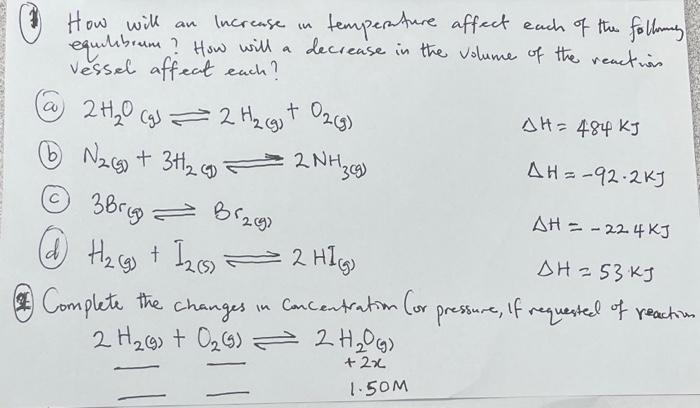 ① How will an Increase in temperature affect each of the following
equilibrium? How will a decrease in the volume of the reaction
vessel affect each?
ⓐ 2H₂O(g) ⇌ 2H₂(g) + O₂(g) ΔH = 484 KJ
ⓑ N₂(g) + 3H₂(g) ⇌ 2NH₃(g) ΔH = -92.2KJ
ⓒ 3Br(g) ⇌ Br₂(g) ΔH = -224KJ
ⓓ H₂(g) + I₂(s) ⇌ 2HI(g) ΔH = 53 KJ
② Complete the changes in concentration (or pressure, If requested of reaction
2H₂(g) + O₂(g) ⇌ 2H₂O(g)
+2x
1.50M